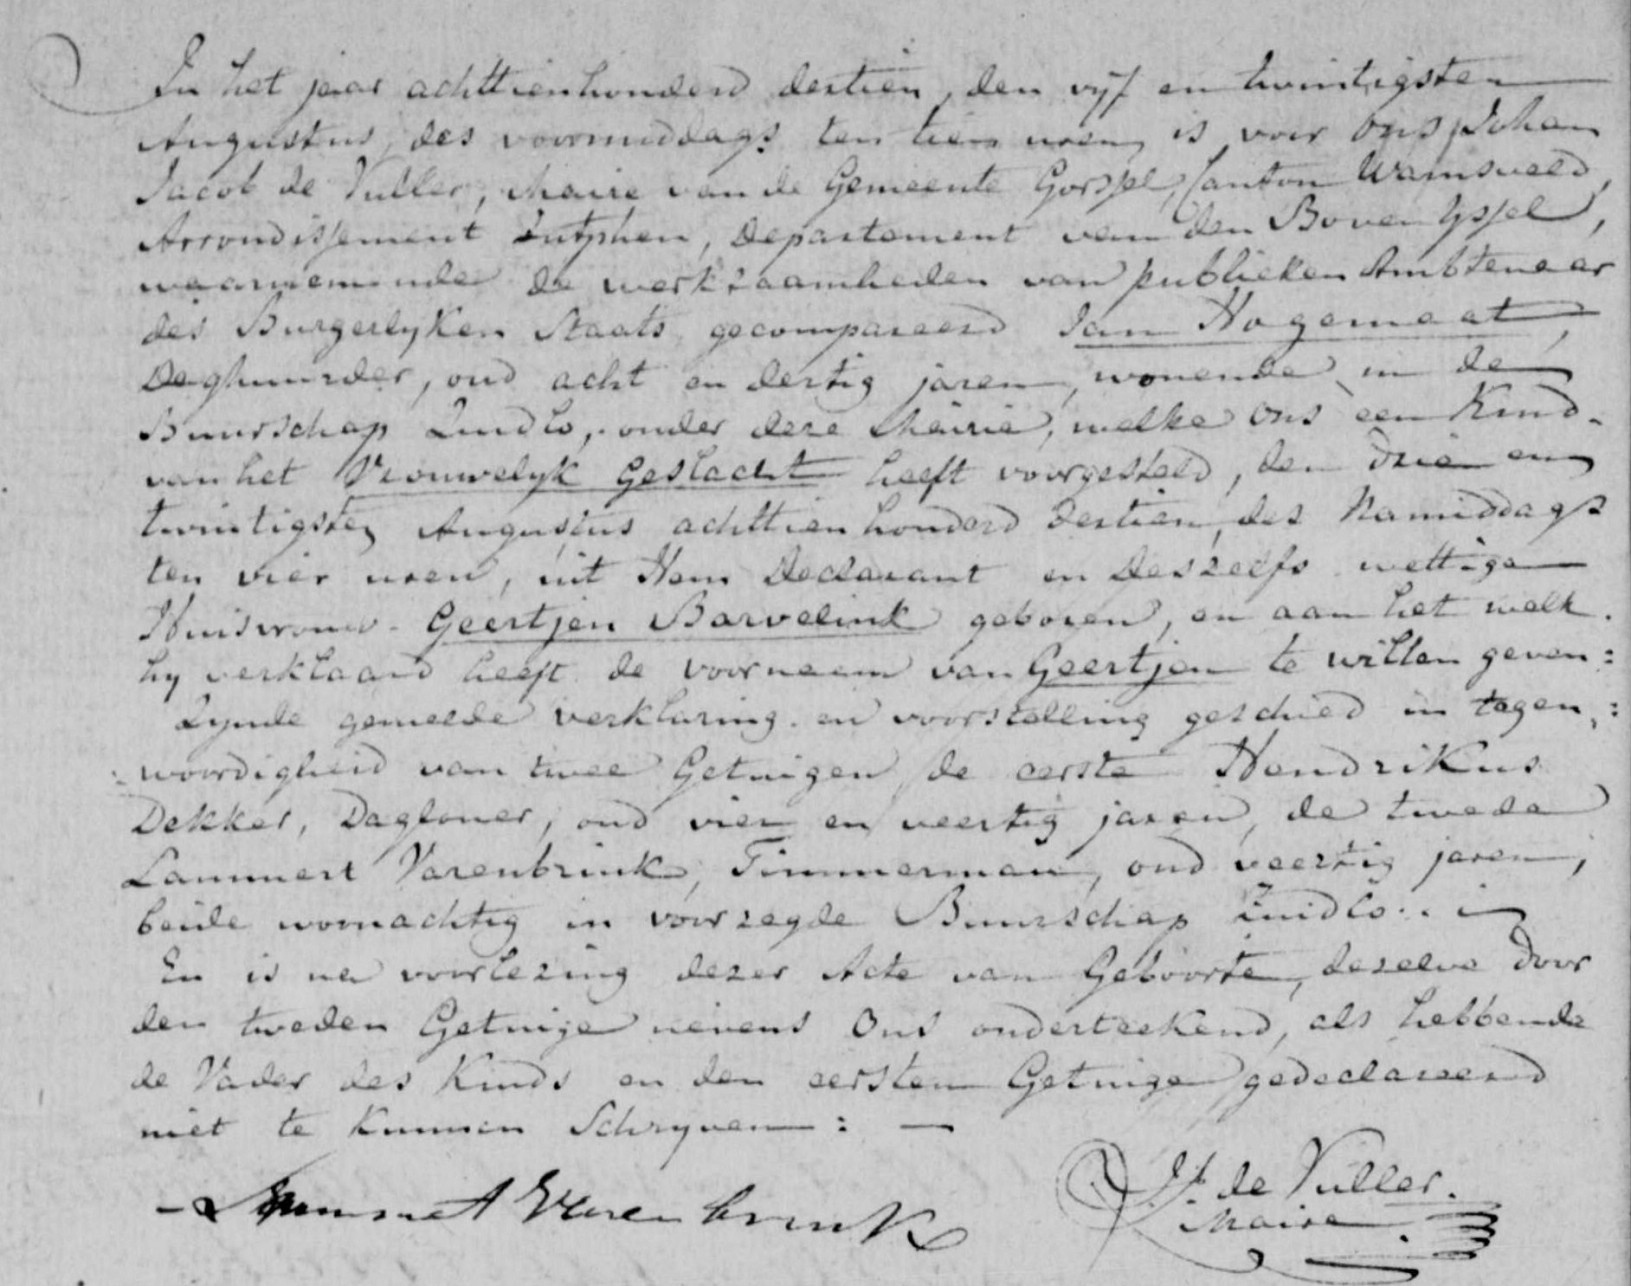 In het jaar achttienhonderd dertien, den vyf en twintigsten
Augustus, des voormiddags ten tien uren, is voor Ons Johan
Jacob de Vuller, Maire van de Gemeente Gorssel, Canton Warnsveld,
Arrondissement Zutphen, Departement van den Boven Yssel,
waarnemende de werkzaamheden van publieken Ambtenaar
des Burgerlyken Staats, gecompareerd Jan Hogemaat,
Daghuurder, oud acht en dertig jaren, wonende in de
Buurschap Zuidlo, onder deze Mairie, welke Ons een Kind
van het Vrouwelyk Geslacht heeft voorgesteld, den drie en
twintigsten Augustus achttien honderd dertien, des Namiddags
ten vier uren, uit Hem Declarant en deszelfs wettige
Huisvrouw Geertjen Barvelink geboren, en aan het welk
hy verklaard heeft de voornaam van Geertjen te willen geven:
Zynde gemelde verklaring en voorstelling geschied in tegen:
woordigheid van twee Getuigen, de eerste Hendrikus
Dekker, Dagloner, oud vier en veertig jaren, de twede
Lammert Varenbrink, Timmerman, oud veertig jaren,
beide woonachtig in voorzegde Buurschap Zuidlo.
En is na voorlezing dezer Acte van Geboorte, dezelve door
den tweden Getuige nevens Ons onderteekend, als hebbende
de Vader des Kinds en den eersten Getuige gedeclareerd
niet te kunnen Schryven: —
Lammert Varenbrink
JJ. de Vuller.
Maire